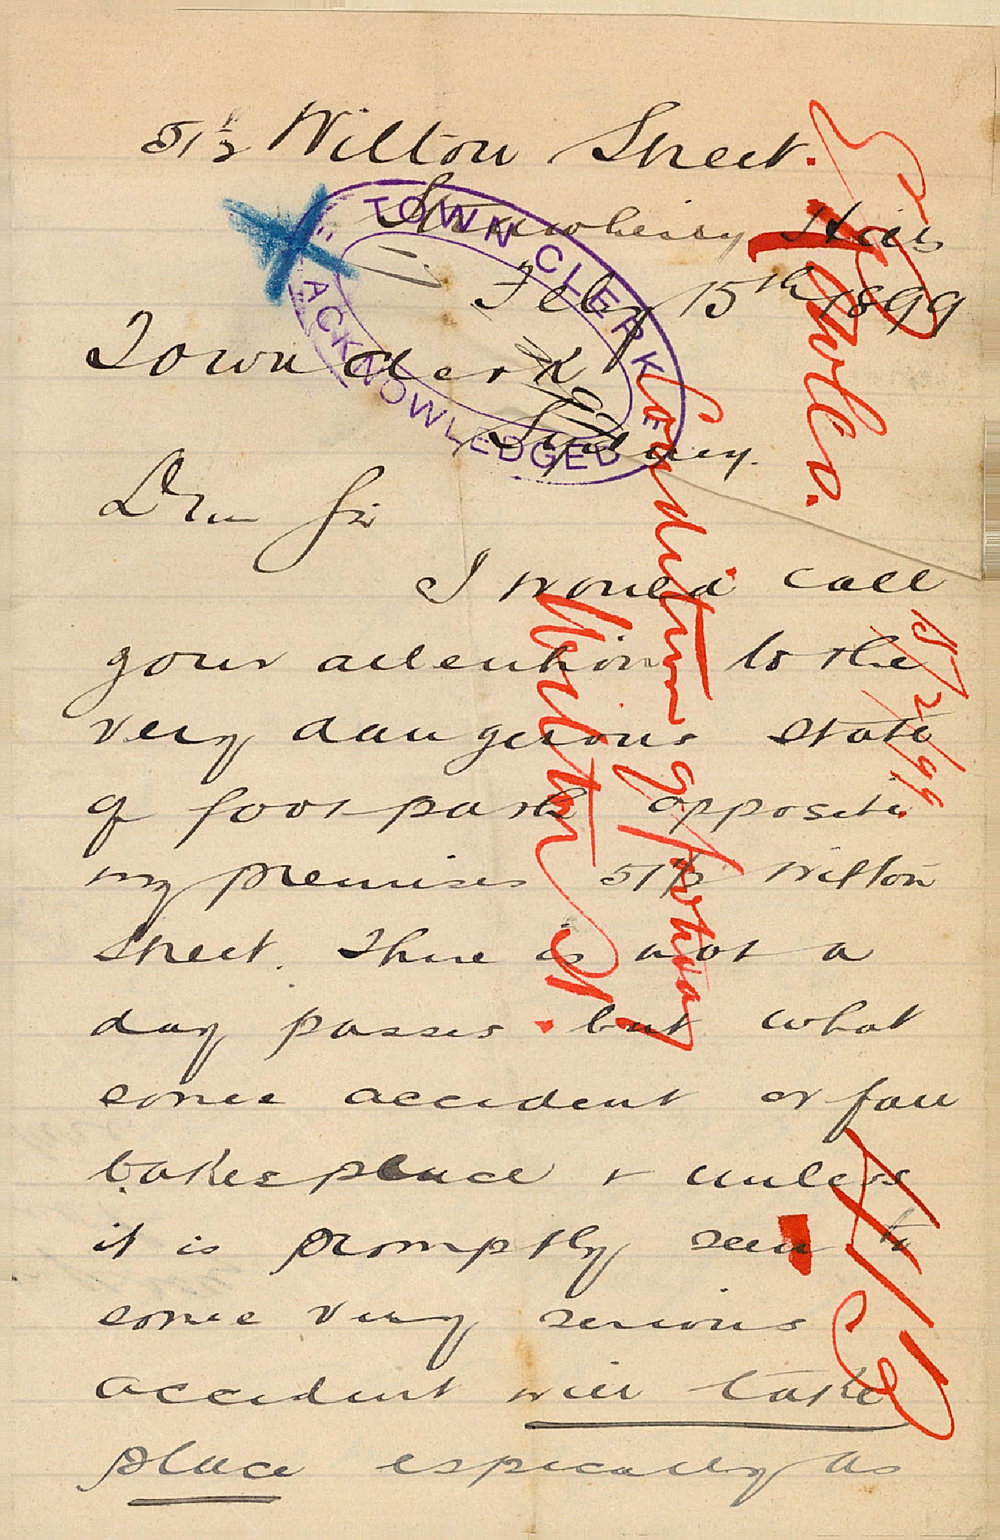 51½ Wilton Street.
Strawberry Hills
Feby 15th 1899
Town Clerk
Sydney.
Dear Sir
I would call
your attention to the
very dangerous state
of footpath opposite
my premises 51½ Wilton
Street. There is not a
day passes but what
some accident or fall
takes place & unless
it is promptly seen to
some very serious
accident will take
place especially as
TOWN CLERK
ACKNOWLEDGED
Condition of footway
Wilton St.
15/2/99